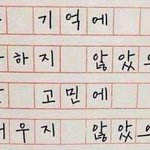 기억에
하지 않았으
고민에
우지 않았으